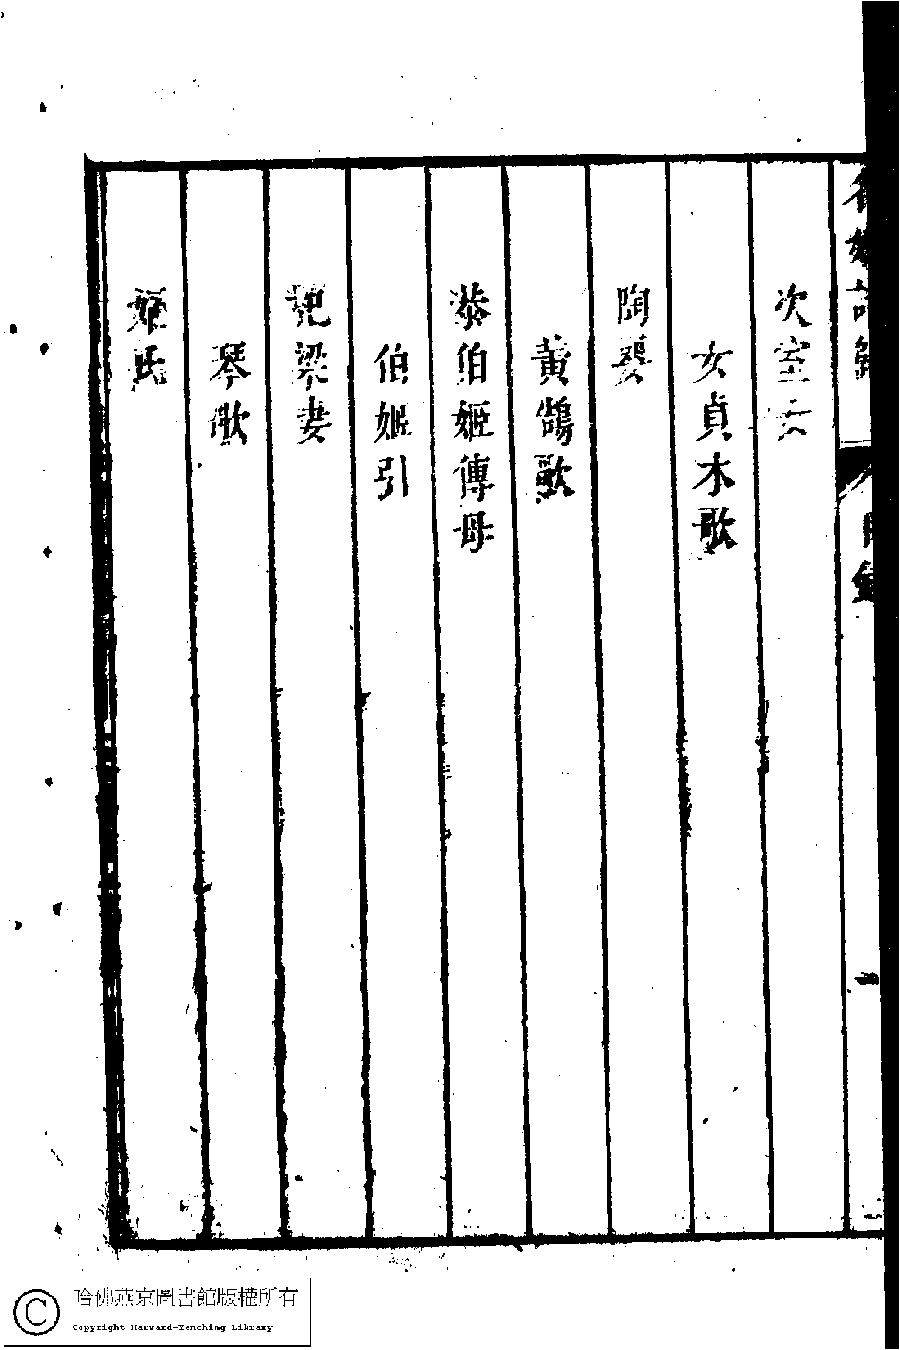 次室女
女貞木歌
陶嬰
黃鵠歌
恭伯姬傳母
伯姬引
杞梁妻
琴歌
姬氏
哈佛燕京圖書館版權所有
Copyright Harvard-Yenching Library